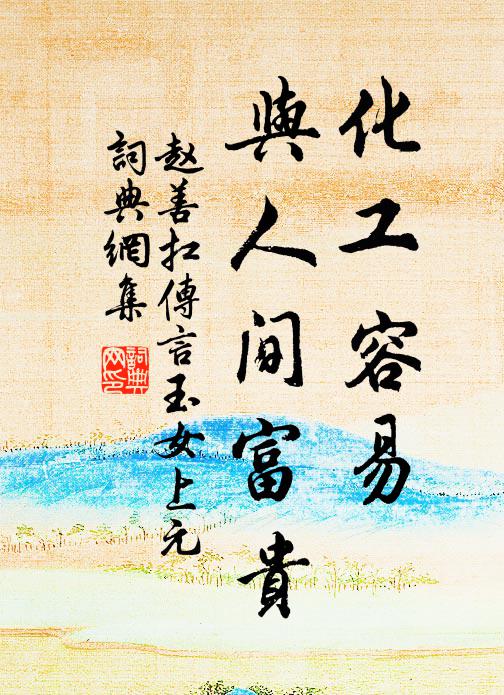 化工容易
與人间富貴
赵善扛傳言玉女上元
詞典網集
詞典
网印